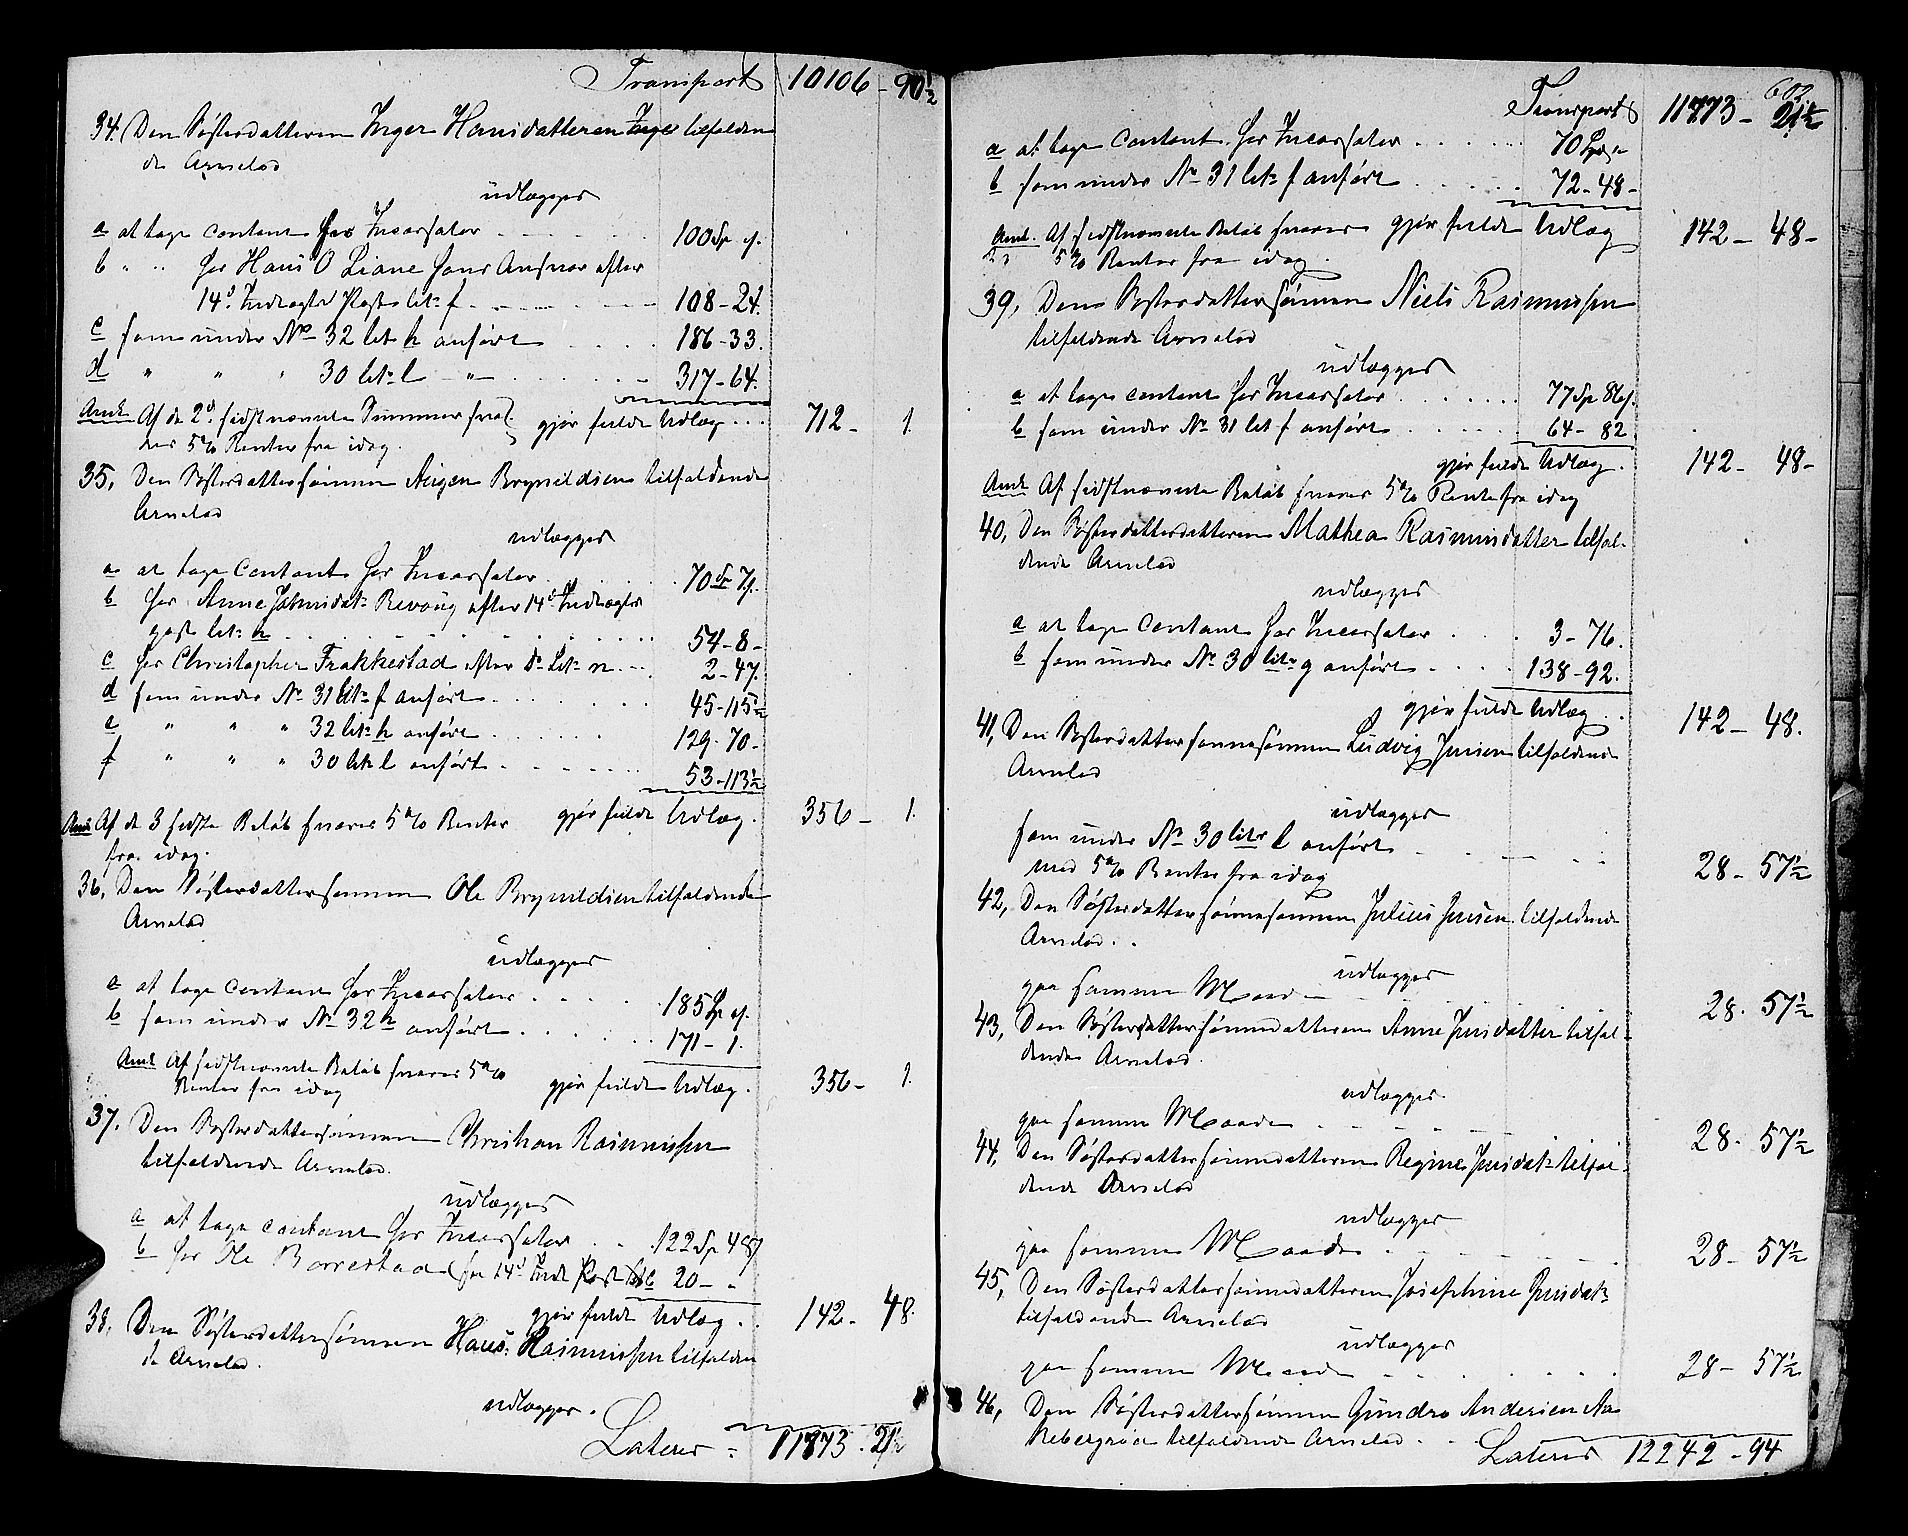 Transport 10106 - 90½
34. Den Søsterdatteren Inger Hansdatteren tilfalden
de Arvelod
udlægges
a at tage contant hos Incassator 100 Sp
b " " hos Hans O Liane hans Ansvar efter
14d. Indtægts Post litr f. 108-24.
c som under No 32 litr h anført 186-33.
d " " " 30 litr l — " — 317-64.
Anm. Af de 2de sidstnævnte Summer sva-
res 5% Renter fra idag. gjør fulde Udlæg 712 - 1.
35, Den Søsterdattersønnen Jørgen Brynildsen tilfaldende
Arvelod
udlægges
a at tage contant hos Incassator 70 Sp 7
b hos Anne Johnsdatr Revoug efter 14d Indtægts
post litr h 54-8-
c hos Christopher Frakkestad efter do Litr n 2-47.
d som under No 31 litr f anført 45-115½
e " " " 32 litr h anført 129-70-
f " " " 30 litr l anført 53-113½
Anm Af de 3 sidste Beløb svares 5% Renter gjør fulde Udlæg. 356 - 1.
fra idag.
36, Den Søsterdattersønnen Ole Brynildsen tilfaldende
Arvelod
udlægges
a at tage contant hos Incassator 185 Sp
b som under No 32 h anført 171-1.
Anm Af sidstnævnte Beløb svares 5%
Renter fra idag gjør fulde Udlæg. 356 - 1.
37. Den Søsterdattersønnen Christian Rasmussen
tilfaldende Arvelod.
udlægges
a at tage contant hos Incassator 122 Sp 48
b hos Ole Borrestad (fra 14d Indt Post 20 - "
gjør fulde Udlæg. 142 - 48.
38. Den Søsterdattersønnen Hans Rasmussen tilfalden
de Arvelod.
udlægges.
Lateris 11773. 21½
602
Transport 11773 - 21½
a at tage contant hos Incassator 70 Spd "
b som under No 31 litr f anført 72-48-
Anm. Af sidstnævnte Beløb svares gjør fulde Udlæg 142 - 48-
5% Renter fra idag.
39, Den Søsterdattersønnen Niels Rasmussen
tilfaldende Arvelod
udlægges
a at tage contant hos Incassator 77 Sp 86
b som under No 31 litr f anført 64-82.
gjør fulde Udlæg. 142 - 48-
Anm Af sidstnævnte Beløb svares 5% Rente fra idag
40, Den Søsterdatterdatteren Mathea Rasmusdatter tilfal-
dende Arvelod
udlægges
a at tage contant hos Incassator 3-76.
b som under No 30 litr g anført 138-92.
gjør fulde Udlæg 142 - 48.
41, Den Søsterdattersønnesønnen Ludvig Jensen tilfaldende
Arvelod
udlægges
som under No 30 litr l anført
med 5% Renter fra idag 28 - 57½
42, Den Søsterdattersønnesønnen Julius Jensen tilfaldende
Arvelod.
udlægges
paa samme Maade 28. 57½
43, Den Søsterdattersønnedatteren Anne Jensdatter tilfal-
dende Arvelod.
udlægges.
paa samme Maade 28. 57½
44, Den Søsterdattersønnedatteren Regine Jensdatr tilfal-
dende Arvelod
udlægges
paa samme Maade 28 - 57½
45, Den Søsterdattersønnedatteren Josephine Jensdatr
tilfaldende Arvelod
udlægges
paa samme Maade 28 - 57½
46, Den Søsterdattersønnen Gundro Andersen
Rebergrøn tilfaldende Arvelod
Lateris 12242 - 94